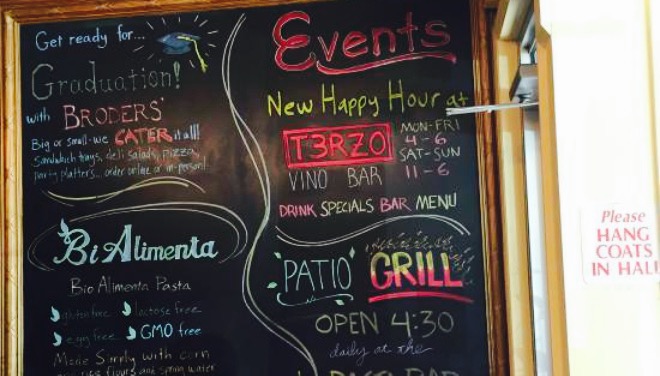 Get ready for...
Graduation!
with BRODERS'
Big or small-we CATER it all!
Sandwich trays, deli salads, pizza,
party platters... order online or in-person!
BiAlimenta
Bio Alimenta Pasta
gluten free lactose free
egg free GMO free
Made Simply with corn
flours and spring water
Events
New Happy Hour at
T3RZO
VINO BAR
MON-FRI
4-6
SAT-SUN
11-6
DRINK SPECIALS BAR MENU
PATIO GRILL
OPEN 4:30
daily at the
BAR
Please
HANG
COATS
IN HALL